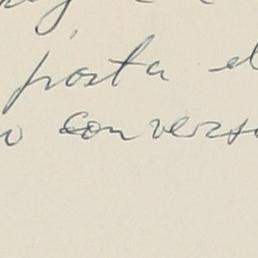 posta el
o convers